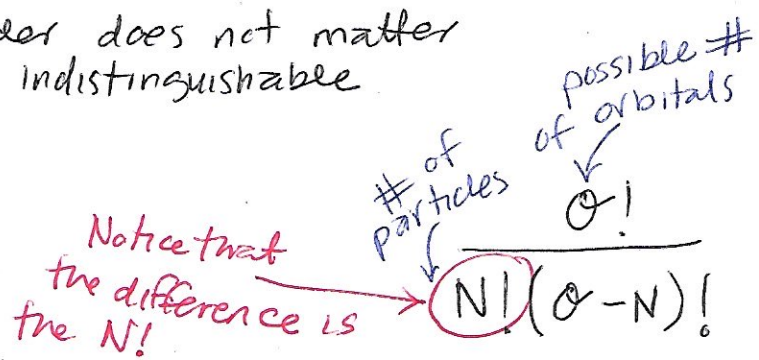 der does not matter
indistinguishable
possible #
of orbitals
# of
particles
O!
N!(O-N)!
Notice that
the difference is
the N!